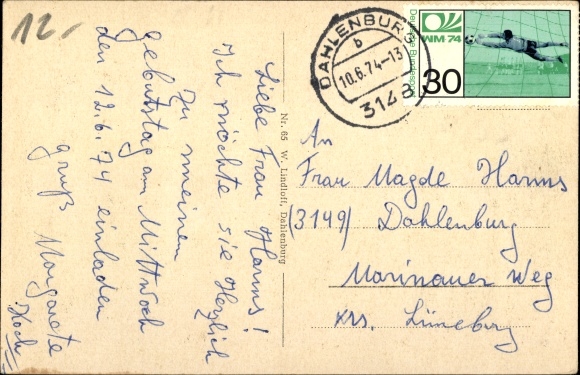 12.-
DAHLENBURG
b
10.6.74-13
3148
WM-74
Deutsche Bundespost
30
Liebe Frau Harms!
Ich möchte sie Herzlich
zu meinem
Geburtstag am Mittwoch
den 12.6.74 einladen
Gruß Margarete
Koch
Nr. 65 W. Lindloff, Dahlenburg
An
Frau Magde Harms
(3149) Dahlenburg
Marinauer Weg
krs. Lüneburg